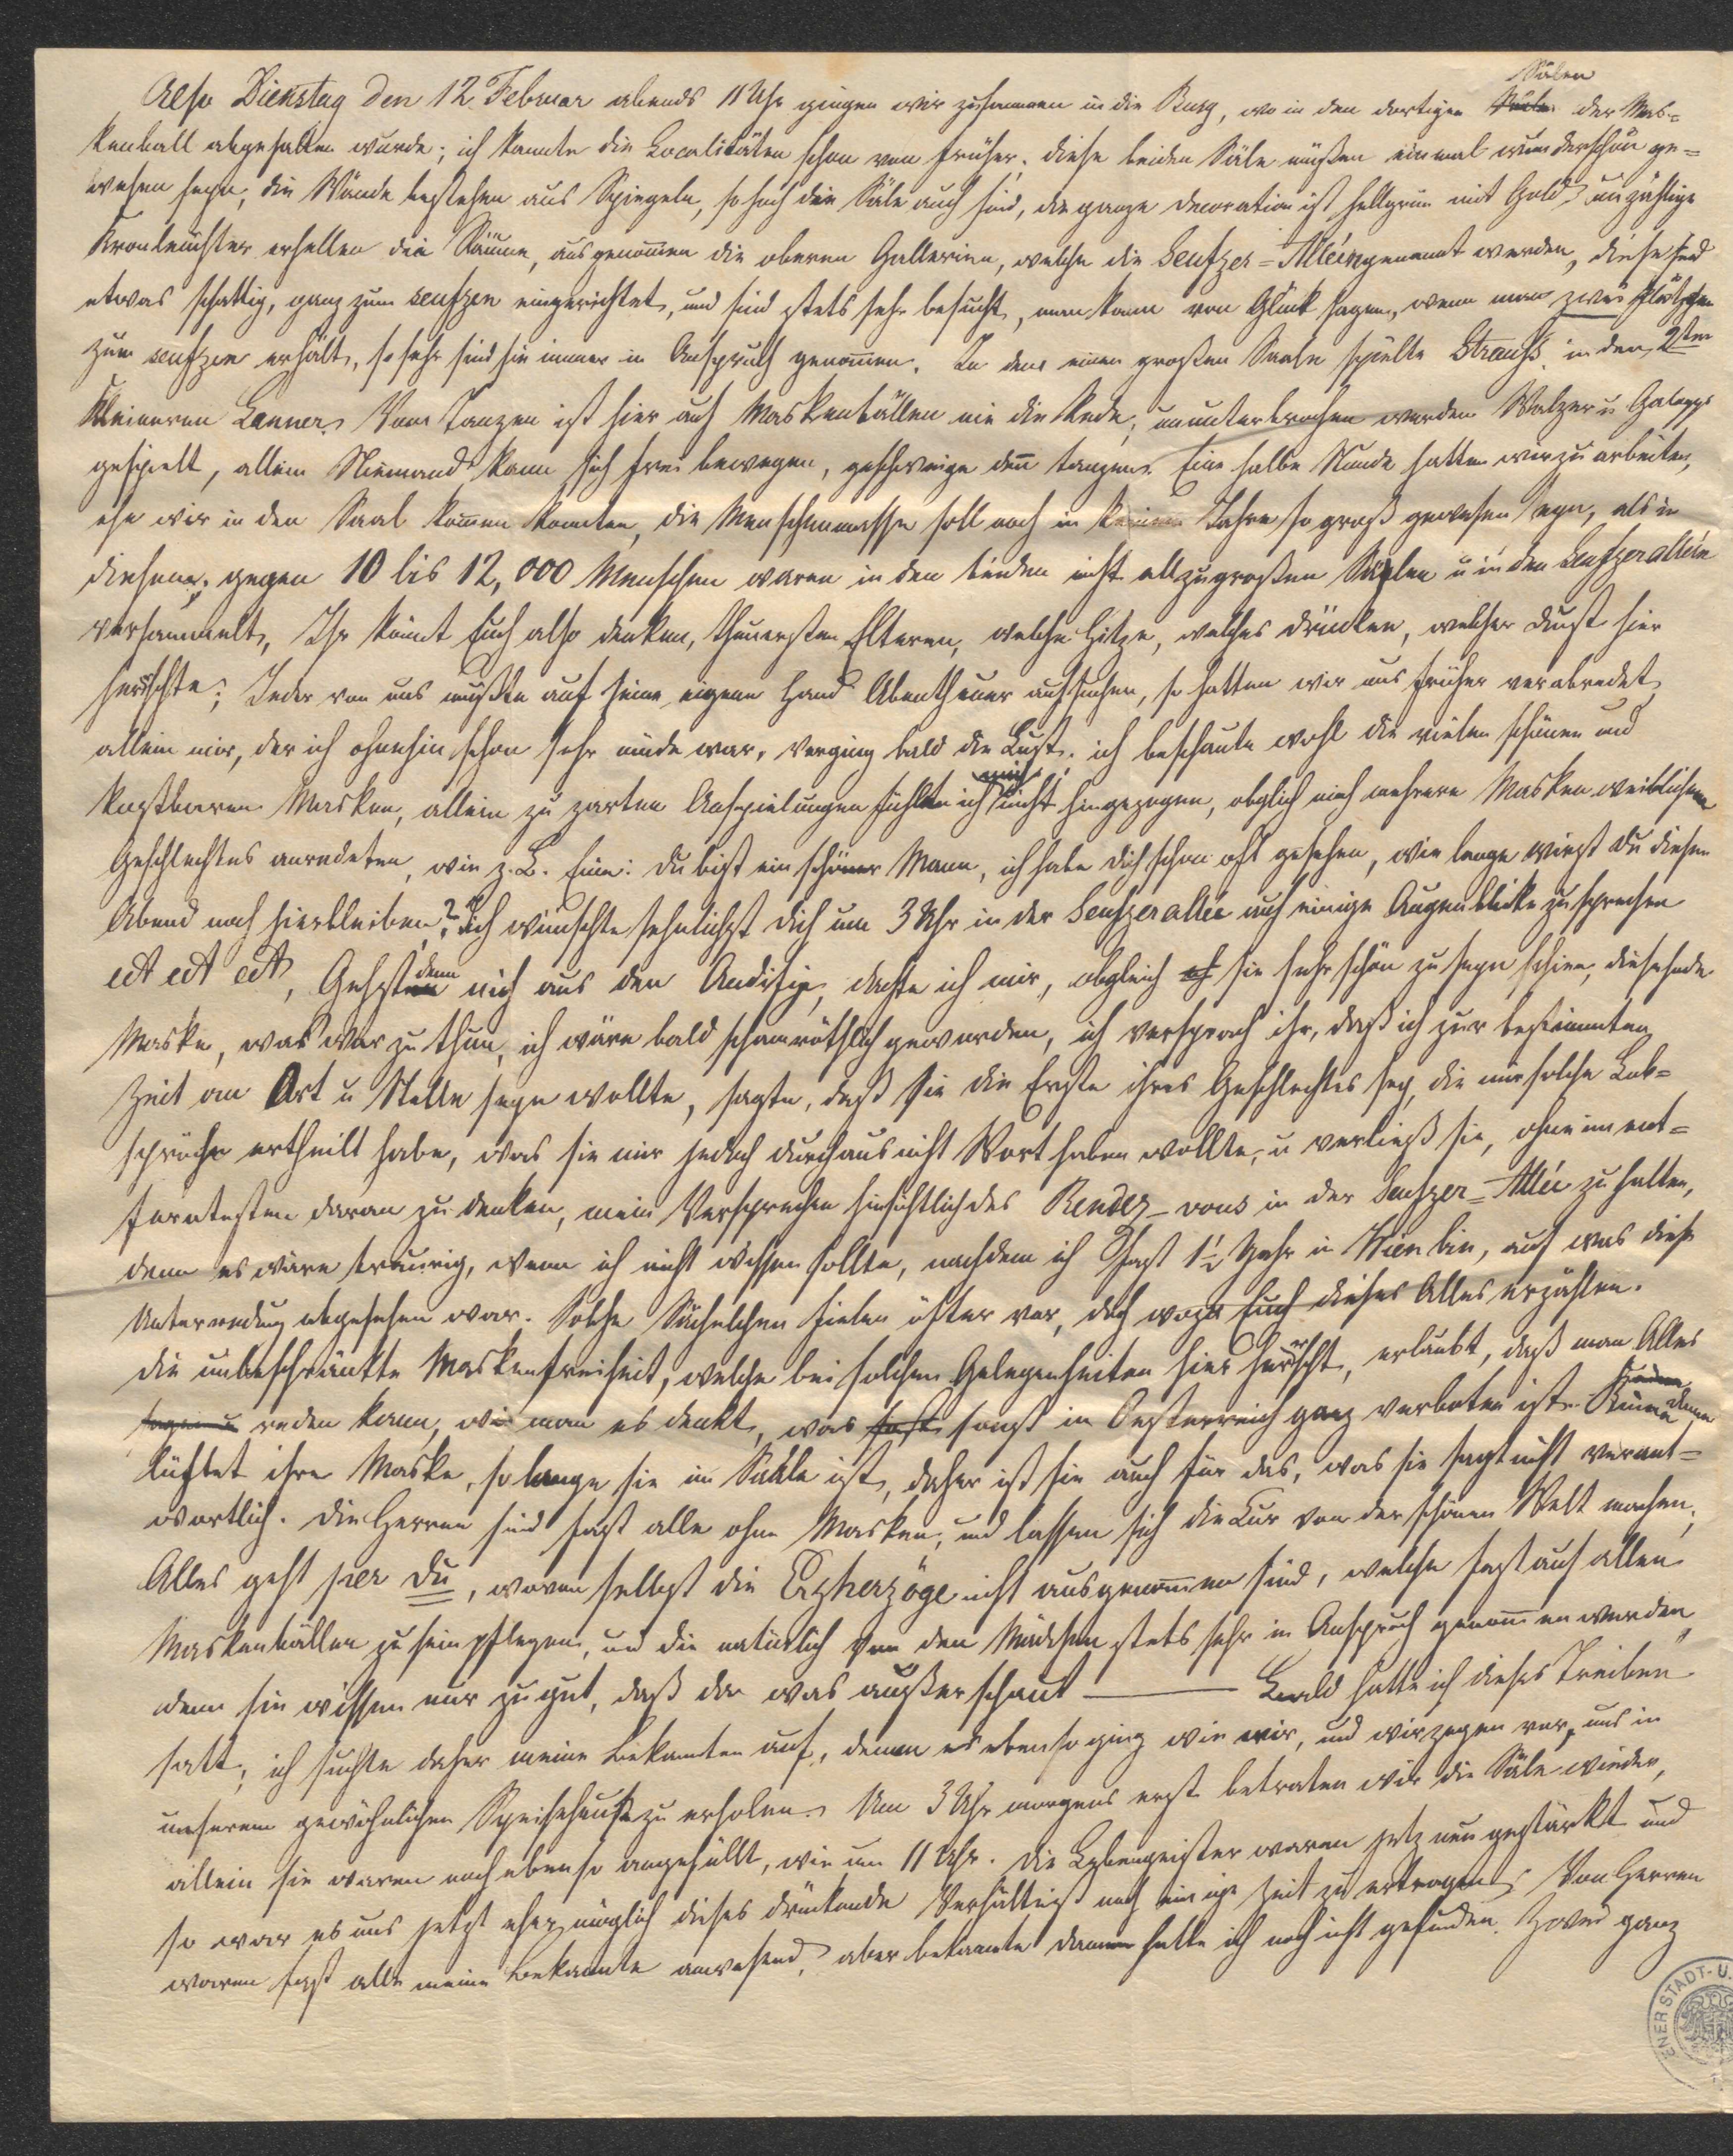 Also Dienstag den 12. Februar abends 11 Uhr gingen wir zusammen in die Burg, wo in den dortigen Sälen der Mas=
kenball abgehalten wurde; ich kannte die Localitäten schon von früher; diese beiden Säle müßen einmal wunderschön ge=
wesen seyn, die Wände bestehen aus Spiegeln, so hoch die Säle auch sind, die ganze Decoration ist hellgrün mit Gold, unzählige
Kronleuchter erhellen die Räume, ausgenommen die oberen Gallerien, welche die Seufzer=Alléen genannt werden, diese sind
etwas schattig, ganz zum seufzen eingerichtet, und sind stets sehr besucht, man kann von Glück sagen, wenn man zwei Plätzchen
zum seufzen erhält, so sehr sind sie immer in Anspruch genommen. In dem einen großen Saale spielte Strauß, in dem 2ten
kleineren Lanner. Vom Tanzen ist hier auf Maskenbällen nie die Rede; ununterbrochen werden Walzer u Galopps
gespielt, allein Niemand kann sich frei bewegen, geschweige denn tanzen. Eine halbe Stunde hatten wir zu arbeiten,
ehe wir in den Saal kommen konnten, die Menschenmasse soll noch in keinem Jahre so groß gewesen seyn, als in
diesem; gegen 10 bis 12,000 Menschen waren in den beiden nicht allzugroßen Säälen u in den Seufzeralléen
versammelt, Ihr könnt Euch also denken, theuersten Elteren, welche Hitze, welches drücken, welcher Durst hier
herrschte; Jeder von uns mußte auf seine eigene Hand Abentheuer aufsuchen, so hatten wir uns früher verabredet,
allein mir, der ich ohnehin schon sehr müde war, verging bald die Lust; ich beschaute wohl die vielen schönen und
kostbaren Masken, allein zu zarten Anspielungen fühlte ich mich nicht hingezogen, obglich mich mehrere Masken weiblichen
Geschlechtes anredeten, wie z. B. Eine: Du bist ein schöner Mann, ich habe Dich schon oft gesehen, wie lange wirst Du diesen
Abend noch hierbleiben? ich wünschte sehnlichst Dich um 3 Uhr in der Seufzerallée auf einige Augenblicke zu sprechen
ect ect ect, Gehst denn nich aus den, dachte ich mir, obgleich sie sehr schön zu seyn schien, diese
Maske, was war zu thun, ich wäre bald schamröthlich geworden, ich versprach ihr, daß ich zur bestimmten
Zeit an Ort u Stelle seyn wollte, sagte, daß sie die Erste ihres Geschlechtes sey, die mir solche Lob=
sprüche ertheilt habe, was sie mir jedoch durchaus nicht Wort haben wollte, u verließ sie, ohne im ent=
ferntesten daran zu denken, mein Versprechen hinsichtlich des Rendez-vous in der Seufzer=Allée zu halten,
denn es wäre traurig, wenn ich nicht wissen sollte, nachdem ich fast 1½ Jahr in Wien bin, auf was diese
Unterredung abgesehen war. Solche Sächelchen fielen öfter vor, doch wozu Euch dieses Alles erzählen.
Die unbeschränkte Maskenfreiheit, welche bei solchen Gelegenheiten hier herrscht, erlaubt, daß man Alles
reden kann, wie man es denkt, was sonst in Oesterreich ganz verboten ist. Keine Dame
lüftet ihre Maske, so lange sie im Saale ist, daher ist sie auch für das, was sie sagt nicht verant=
wortlich. Die Herren sind fast alle ohne Masken, und lassen sich die Cur von der schönen Welt machen;
Alles geht per Du, wovon selbst die Erzherzöge nicht ausgenommen sind, welche fast auf allen
Maskenbällen zu sein pflegen, und die natürlich von den Mädchen stets sehr in Anspruch genommen werden,
denn sie wissen nur zu gut, daß da was außerschaut ——— Bald hatte ich dieses Treiben
satt; ich suchte daher meine Bekannten auf, denen es ebenso ging wie mir, und wir zogen vor, uns in
unserem gewöhnlichen Speisehause zu erholen. Um 3 Uhr morgens erst betraten wir die Säle wieder,
allein sie waren noch ebenso angefüllt, wie um 11 Uhr. Die Lebengeister waren jetz neu gestärkt und
so war es uns jetzt eher möglich dieses drückende Verhältniß noch einige Zeit zu ertragen. Von Herren
waren fast alle meine Bekannte anwesend, aber bekannte Damen hatte ich noch nicht gefunden. Zwei ganz
ENER STADT-U.